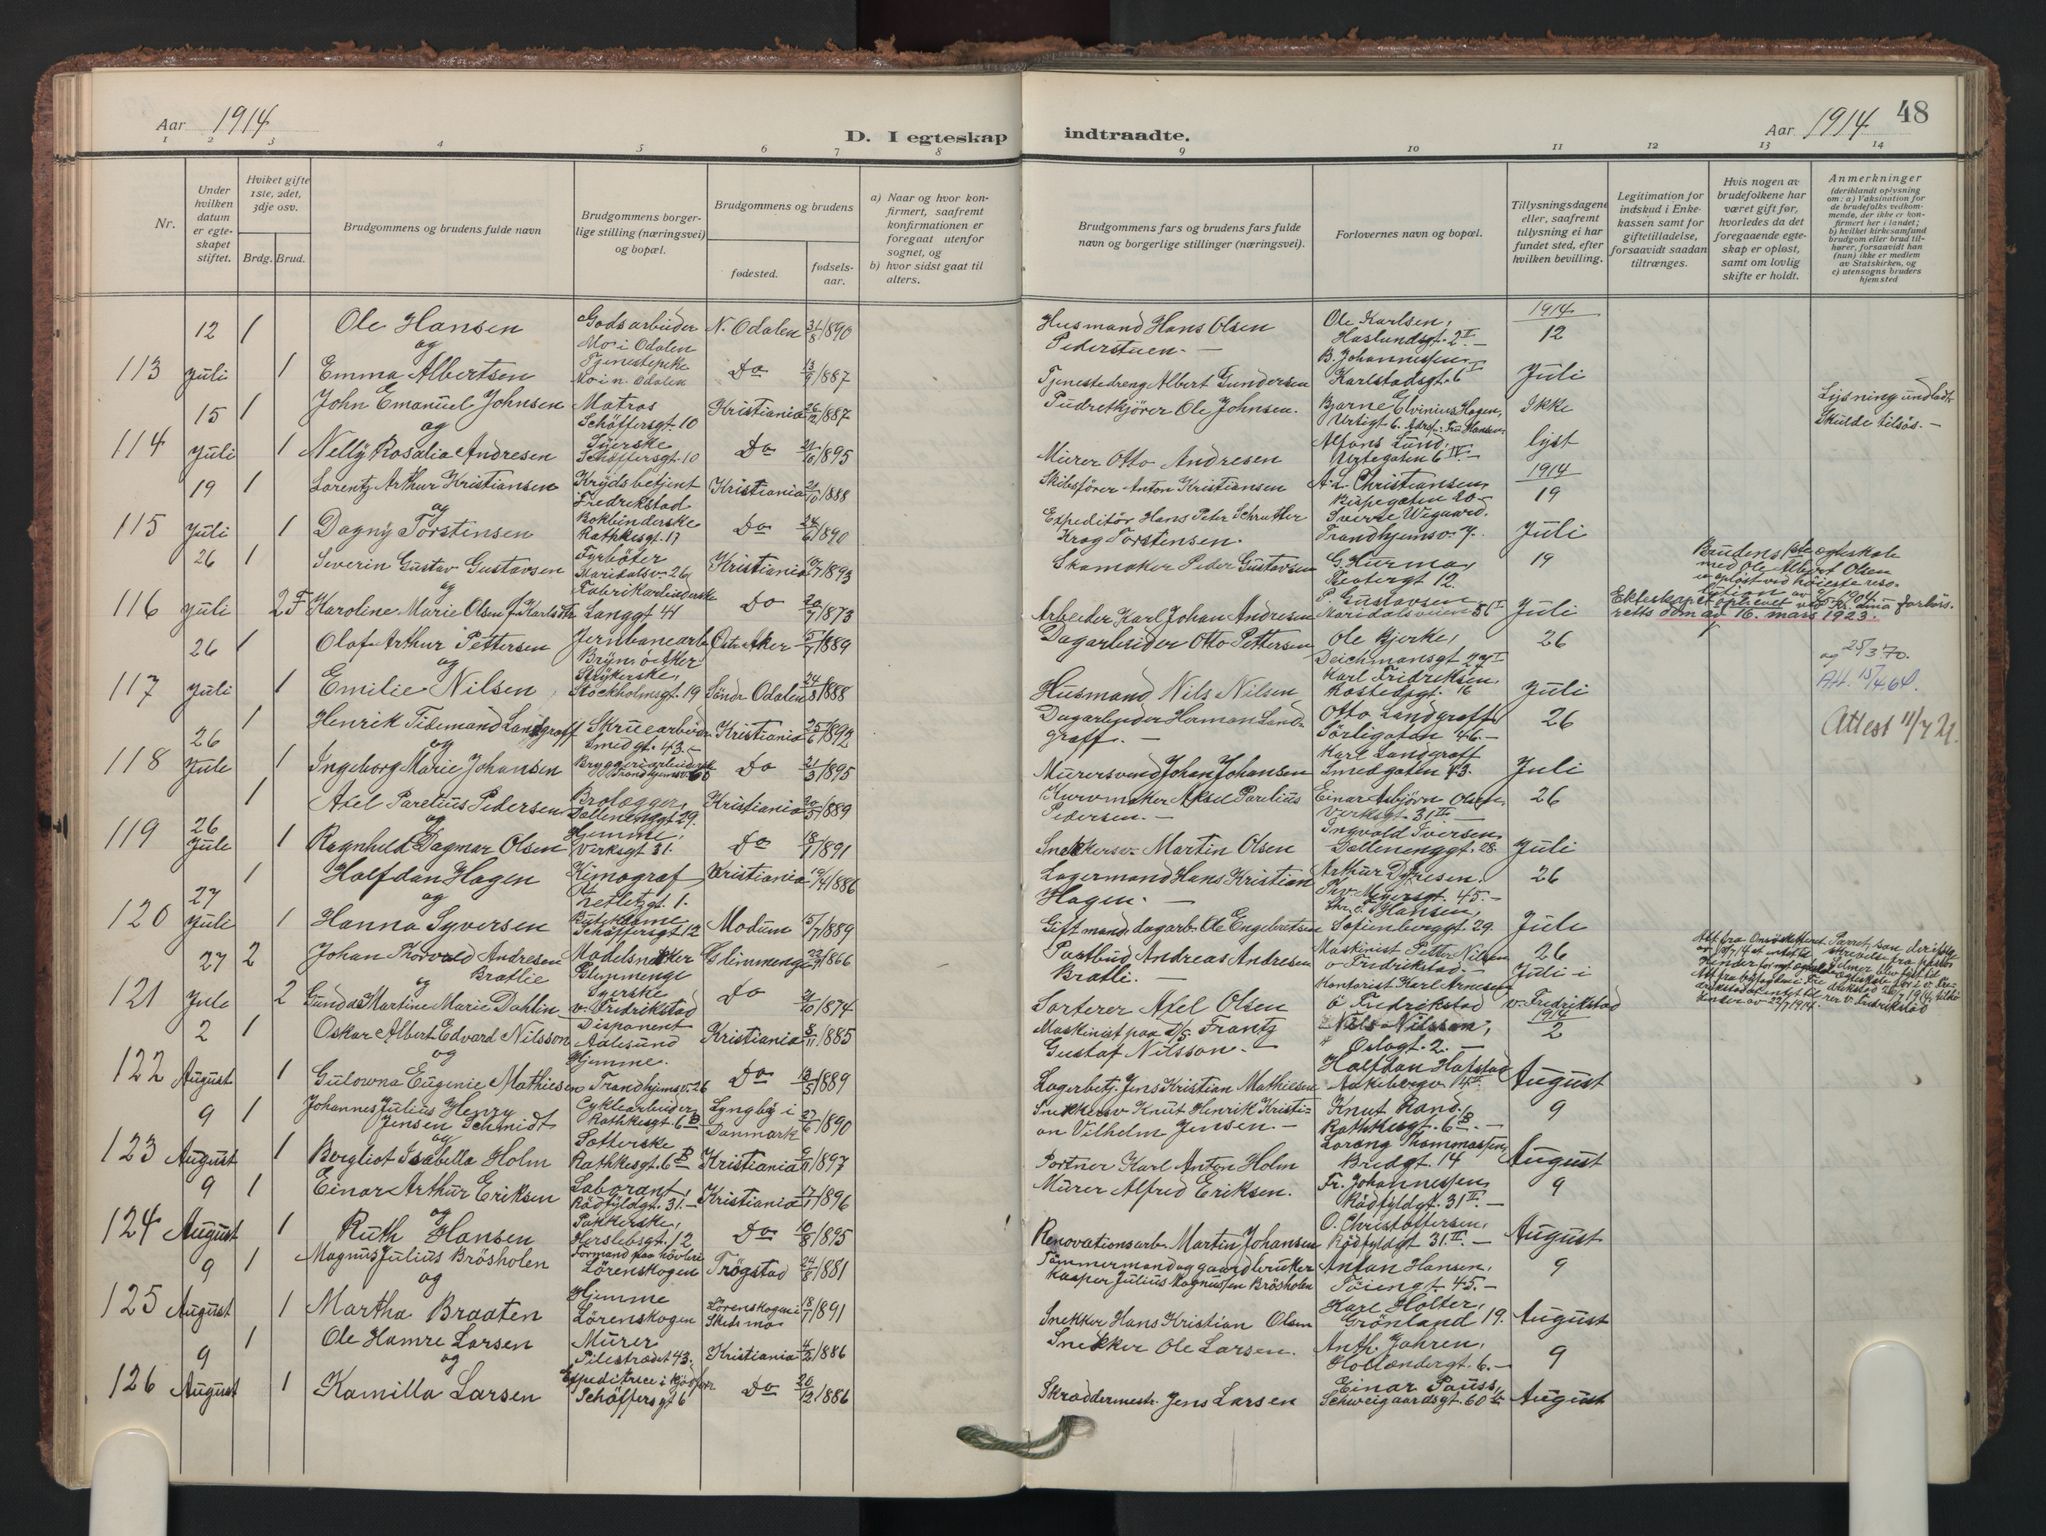 Aar 1914
D. I egteskap indtraadte.
Aar 1914
48
1 2 3 4 5 6 7 8 9 10 11 12 13 14
Nr.
Under hvilken datum er egteskapet stiftet.
Hviket gifte 1ste, 2det, 3dje osv.
Brdg. Brud.
Brudgommens og brudens fulde navn
Brudgommens borgerlige stilling (næringsvei) og bopæl.
Brudgommens og brudens
fødested.
fødselsaar.
a) Naar og hvor konfirmert, saafremt konfirmationen er foregaat utenfor sognet, og
b) hvor sidst gaat til alters.
Brudgommens fars og brudens fars fulde navn og borgerlige stillinger (næringsvei).
Forlovernes navn og bopæl.
Tillysningsdagene eller, saafremt tillysning ei har fundet sted, efter hvilken bevilling.
Legitimation for indskud i Enkekassen samt for giftetilladelse, forsaavidt saadan tiltrænges.
Hvis nogen av brudefolkene har været gift før, hvorledes da det foregaaende egteskap er opløst, samt om lovlig skifte er holdt.
Anmerkninger
(deriblandt oplysning om: a) Vaksination for de brudefolks vedkommende, der ikke er konfirmert her i landet; b) hvilket kirkesamfund brudgom eller brud tilhører, forsaavidt han (hun) ikke er medlem av Statskirken, og c) utensogns bruders hjemsted
113 12 Juli 1 Ole Hansen Godsarbeider Mo i Odalen N. Odalen 31/8 1890 Husmand Hans Olsen Pederstuen. Ole Karlsen, Haslundsgt. 2 II 1914 12 Juli
og
1 Emma Albertsen Tjenestepike Mo i N. Odalen Do 13/9 1887 Tjenestedreng Albert Gundersen B. Johannessen Karlstadsgt. 6 I
114 15 Juli 1 John Emanuel Johnsen Matros Schöffersgt 10 Kristiania 26/2 1887 Pudretkjører Ole Johnsen. Bjarne Elvinius Hagen, Urtegt 6. Ikke lyst Lysning undladt. Skulde tilsjøs.
og
1 Nelly Rosalia Andresen Syerske Schöffersgt. 10 Do 21/10 1895 Murer Otto Andresen Alfons Lund, Urtegaten 6 IV
115 19 Juli 1 Lorentz Arthur Kristiansen Krydsbetjent Fredrikstad Kristiania 21/10 1888 Skibsfører Anton Kristiansen A. L. Christiansen, Bispegaten 20 1914 19 Juli
og
1 Dagny Torstensen Bokbinderske Rathkesgt. 17 Do 24/6 1890 Expeditör Hans Peter Schrøtter Krog Torstensen. Sverre Wegaard. Trondhjemsv. 7.
116 26 Juli 1 Severin Gustav Gustavsen Fyrbøter Maridalsv. 26 Kristiania 1893 Skomaker Peder Gustavsen G. Hurma, Teatergt 12. 19 Juli
og
2 F Karoline Marie Olsen f. Karlsen Fabrikarbeiderske Langgt 41 Do 20/7 1873 Arbeider Karl Johan Andresen P. Gustavsen Maridalsveien 56 II
Brudens ægteskab med Ole Albert Olsen opløst ved høieste resolution av 1904.
Ekteskapet ophevet ved Kr.ania forhörsretts dom av 16. mars 1923.
117 26 Juli 1 Olaf Arthur Pettersen Jernbanearb. Østre Aker 5/7 1889 Dagarbeider Otto Pettersen Ole Bjerke, Deichmansgt 27 I 26 Juli og 25/3 70.
og
1 Emilie Nilsen Strykerske, Stockholmsgt. 19 Söndr Odalen 24/8 1888 Husmand Nils Nilsen Karl Fridriksen, Rostedsgt. 16
118 26 Juli 1 Henrik Tidemand Landgraff Skruearbeider Smedgt. 43. Kristiania 25/6 1892 Dagarbeider Herman Landgraff. Otto Landgraff Sörligaten 46. 26 Juli Attest 11/7 21.
og
1 Ingeborg Marie Johansen Bryggeriarbeiderske Trondhjemsv. 60 Do 21/3 1895 Murersvend Johan Johansen Karl Landgraff Smedgaten 43.
119 26 Juli 1 Axel Parelius Pedersen Brolægger, Dælenenggt 29. Kristiania 20/5 1889 Kurvmaker Aksel Parelius Pedersen. Einar Asbjörn Olsen Verksgt. 31 II 26 Juli
og
1 Ragnhild Dagmar Olsen Hjemme, Verksgt 31. Do 18/1 1891 Snekkersv. Martin Olsen Ingvald Iversen Dælenenggt. 28.
120 27 Juli 1 Halfdan Hagen Kinograf Kristiania 1886 Lagermand Hans Kristian Hagen. Arthur Dyresen. Thv. Meyersgt. 45. 26 Juli
og
1 Hanna Syversen Butikdame Schöffersgt 12 Modum 5/7 1889 Giftmand dagarb. Ole Engebretsen Hansen, Sofienberggt. 29.
121 27 Juli 2 Johan Thorvald Andresen Bratlie Modelsnekker Glimmenge Glimmenge 22/9 1866 Postbud Andreas Andresen Bratli. Maskinist Petter Nilsen v Fredrikstad. 26 Juli i v. Fredrikstad
og
2 Gunda Martine Marie Dahlin Syerske v. Fredrikstad Do 1874 Sorterer Axel Olsen Kontorist Karl Arnesen Ö Fredrikstad
122 2 August 1 Oskar Albert Edvard Nilsson Disponent Aalesund Kristiania 8/11 1885 Maskinist paa D/S Frantz Gustaf Nilsson. Nils Nilsson, Oslogt. 2. 1914 2 August
og
1 Gulowna Eugenie Mathiesen Hjemme. Trondhjemsv. 26 Do 13/5 1889 Lagerbetj. Jens Kristian Mathiesen Halfdan Hafstad Aakebergv 14 II
123 9 August 1 Johannes Julius Henry Jensen Schmidt Cyklearbeider Rathkesgt. 6 B Lyngby i Danmark 27/6 1890 Snekkersv Knut Henrik Kristian Vilhelm Jensen. Knut Rand. Rathkesgt. 6 B. 9 August
og
1 Borgliot Isabella Holm Sotterske Rathkesgt. 6 B Kristiania 1897 Portner Karl Anton Holm Lorang Thommassen, Bredgt. 14
124 9 August 1 Einar Arthur Eriksen Laborant, Rödfyldgt. 31. Kristiania 17/1 1896 Murer Alfred Eriksen. Fr. Johannessen, Rödfyldgt. 31 II. 9 August
og
1 Ruth Hansen Pakkerske, Herslebsgt. 12 Do 10/8 1895 Renovationsarb. Martin Johansen O. Christoffersen, Rödfyldgt 31 II.
125 9 August 1 Magnus Julius Brösholen Formand paa hövleri Lörenskogen Trögstad 24/8 1881 Tömmermand og gaardbruker Kasper Julius Magnussen Brösholen Anton Hansen, Töiengt. 45. 9 August
og
1 Martha Braaten Hjemme Lörenskogen Lörenskogen i Skedsmo 18/7 1891 Snekker Hans Kristian Olsen Karl Holter, Grönland 19.
126 9 August 1 Ole Hamre Larsen Murer Pilestrædet 43. Kristiania 4/2 1886 Snekker Ole Larsen. Anth. Jahren, Hollændergt. 6. 9 August
og
1 Kamilla Larsen Expeditrice i Kjödforr. Schöffersgt 6 Do 20/12 1886 Skræddermestr. Jens Larsen Einar Pauss, Schweigaardsgt. 60 b